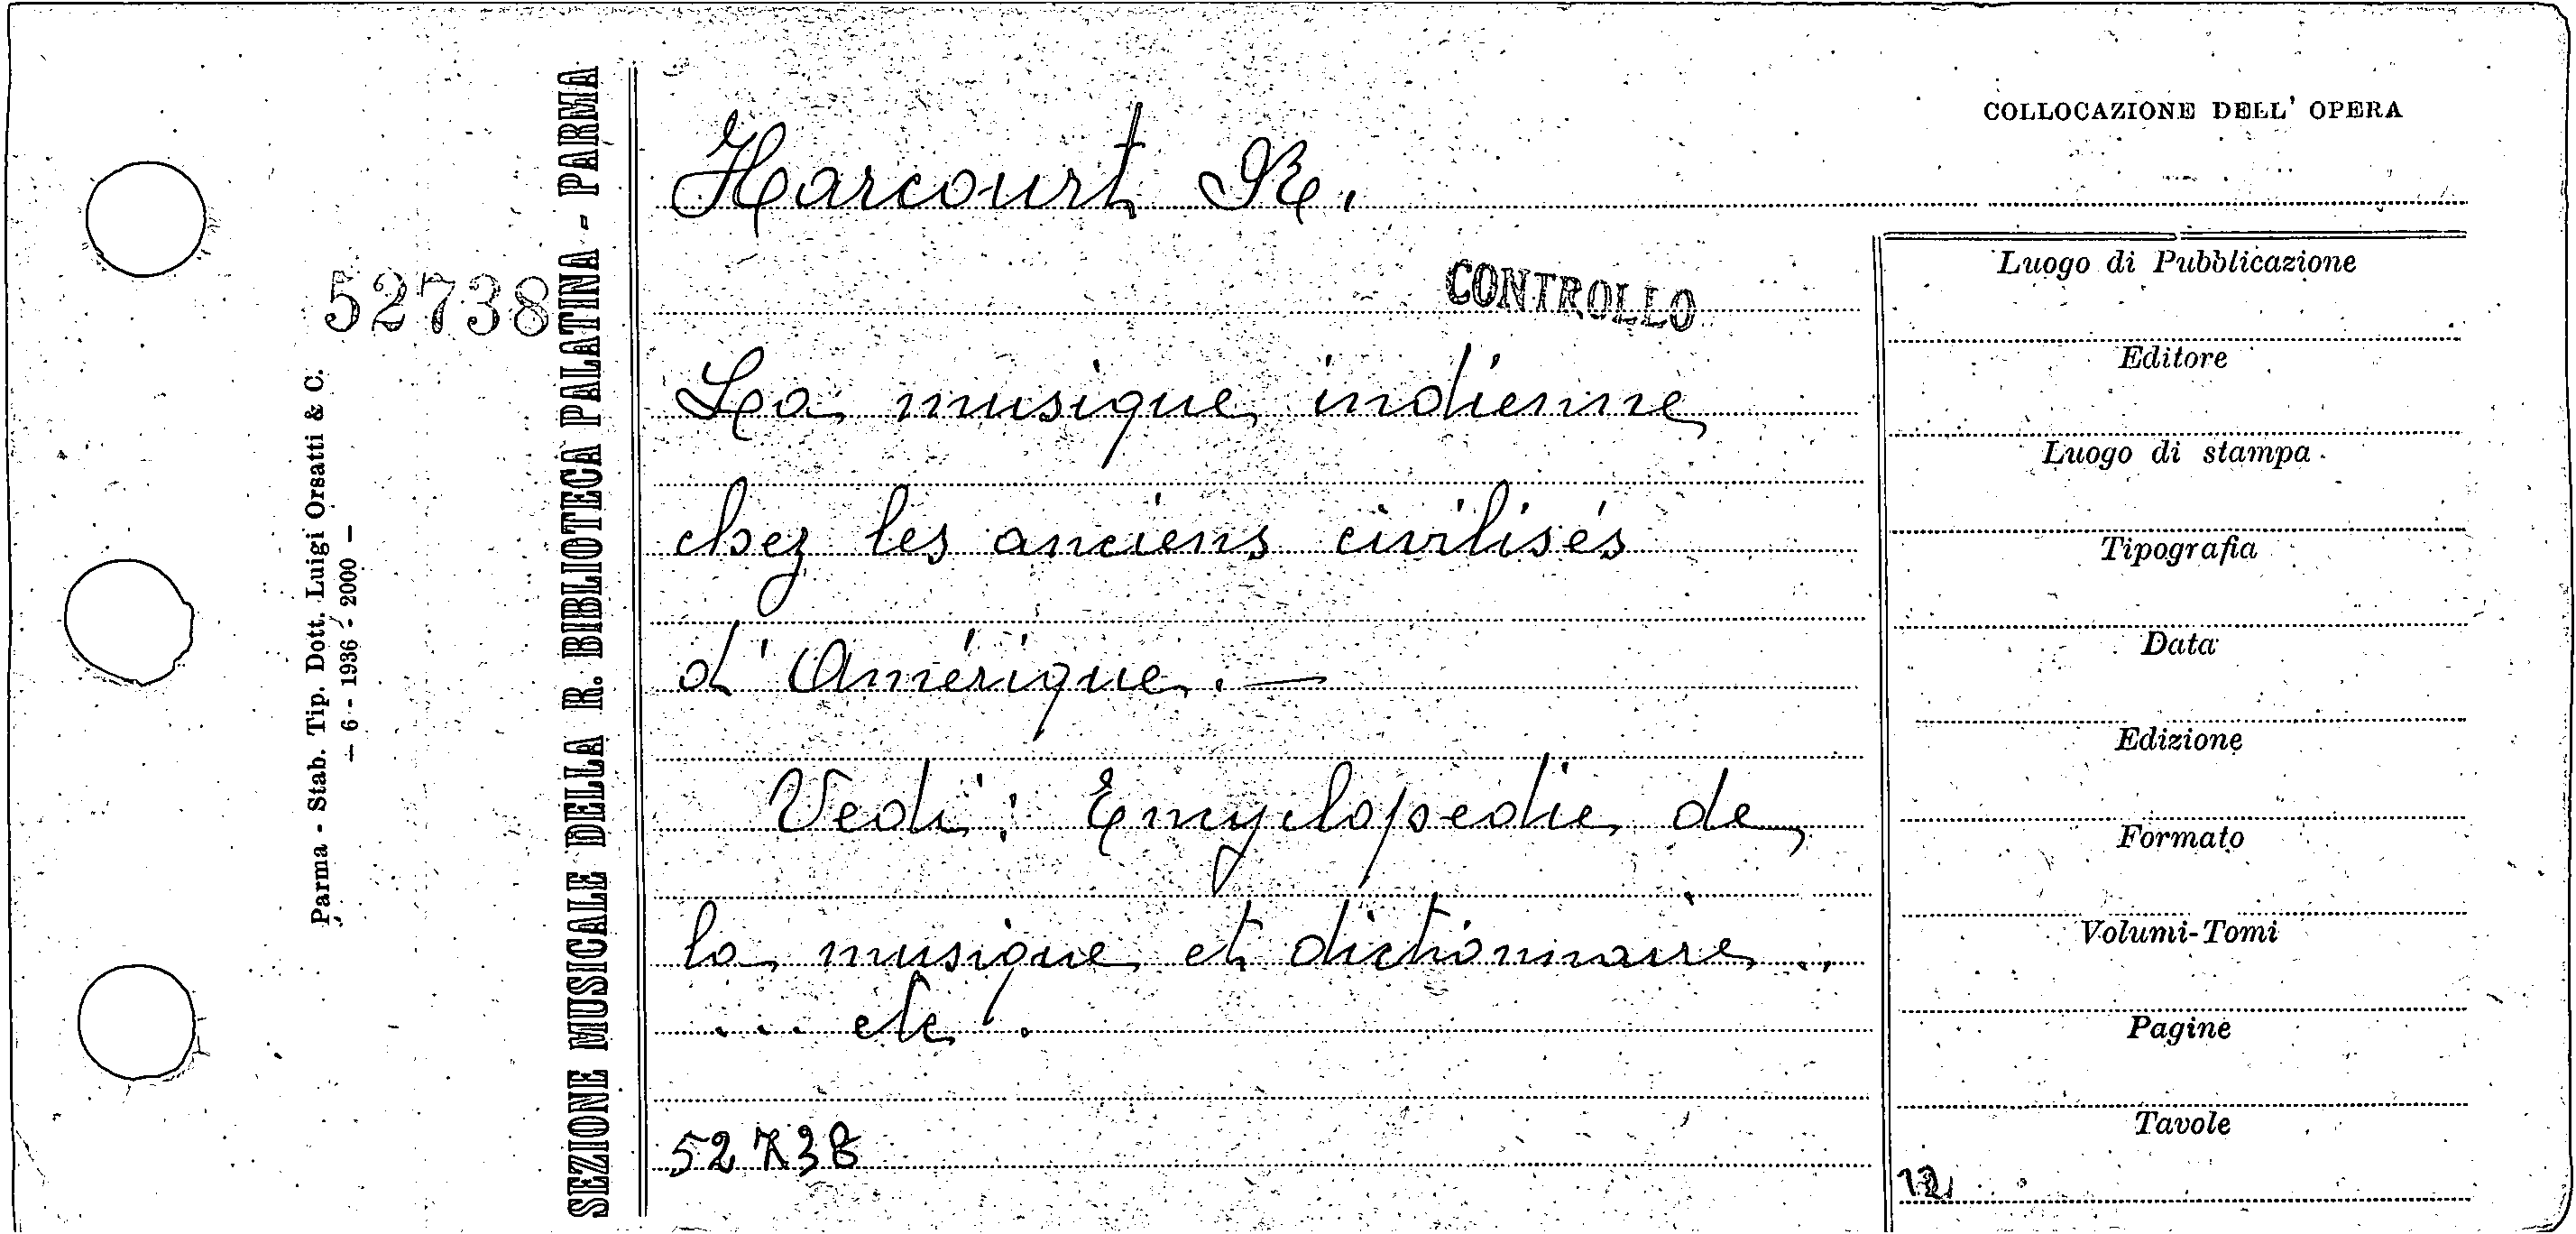 Harcourt R.
COLLOCAZIONE DELL' OPERA
52738
CONTROLLO
La musique indienne
chez les anciens civilisés
d'Amérique. —
Vedi: Encyclopedie de
la musique et dictionnaire ..
... etc.
52738
Luogo di Pubblicazione
Editore
Luogo di stampa
Tipografia
Data
Edizione
Formato
Volumi-Tomi
Pagine
Tavole
12
SEZIONE MUSICALE DELLA R. BIBLIOTECA PALATINA - PARMA
Parma - Stab. Tip. Dott. Luigi Orsatti & C.
— 6 - 1936 - 2000 —